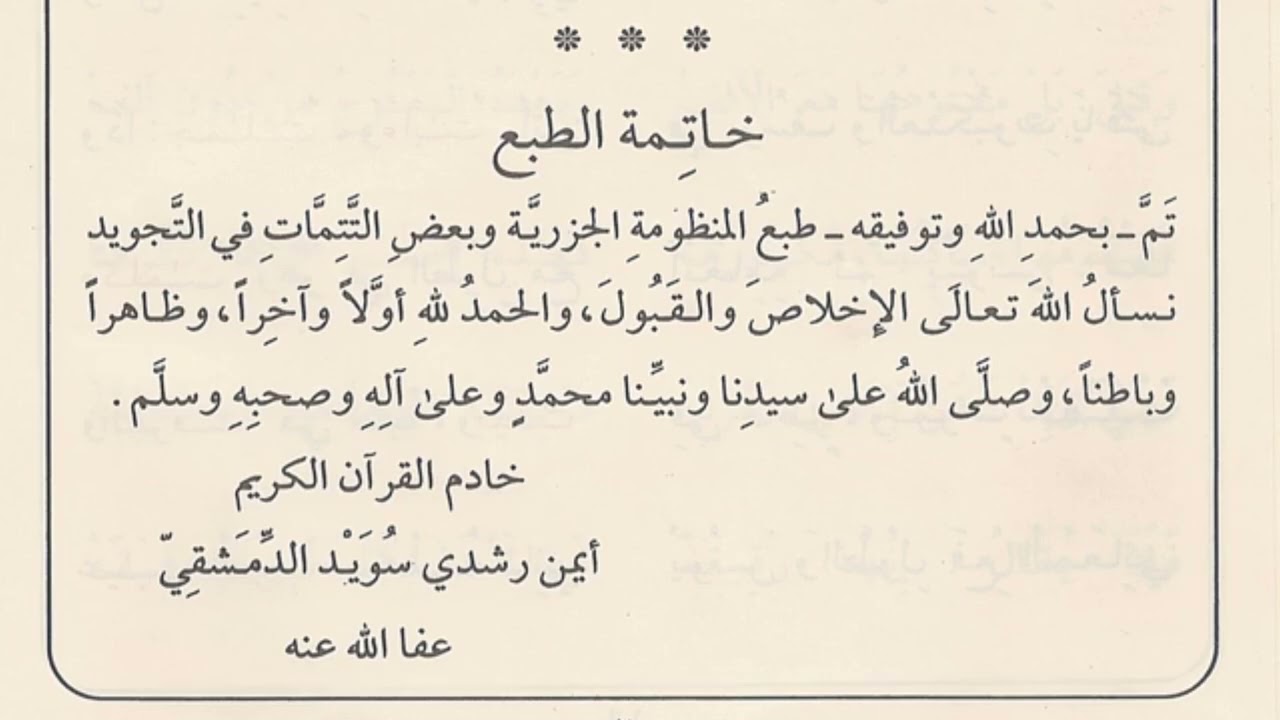 خاتِمة الطبع
تَمَّ - بحمدِ اللهِ وتوفيقه - طبعُ المنظومةِ الجزريَّة وبعضِ التَّتِمَّاتِ في التَّجويد
نسألُ اللهَ تعالَى الإِخلاصَ والقَبُولَ، والحمدُ للهِ أوَّلاً وآخِراً، وظاهراً
وباطناً، وصلَّى اللهُ علىٰ سيدِنا ونبيِّنا محمَّدٍ وعلىٰ آلِهِ وصحبِهِ وسلَّم.
خادم القرآن الكريم
أيمن رشدي سُوَيْد الدِّمَشقِيّ
عفا الله عنه